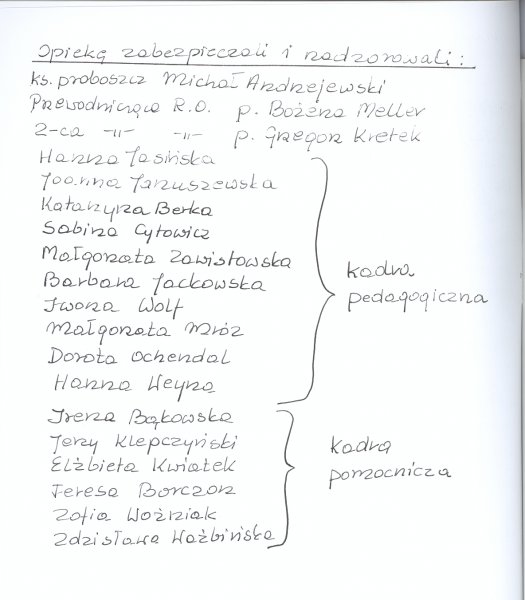 Opiekę zabezpieczali i nadzorowali:
ks. proboszcz Michał Andrzejewski
Przewodnicząca R.O. p. Bożena Meller
Z-ca -"- -"- p. Grzegorz Kretek
Hanna Jasińska
Joanna Januszewska
Katarzyna Berka
Sabina Cytowicz
Małgorzata Zawistowska
Barbara Jackowska
Iwona Wolf
Małgorzata Mróz
Dorota Ochendal
Hanna Weyna
kadra
pedagogiczna
Irena Bąkowska
Jerzy Klepczyński
Elżbieta Kwiatek
Teresa Borczon
Zofia Woźniak
Zdzisława Waźbińska
kadra
pomocnicza